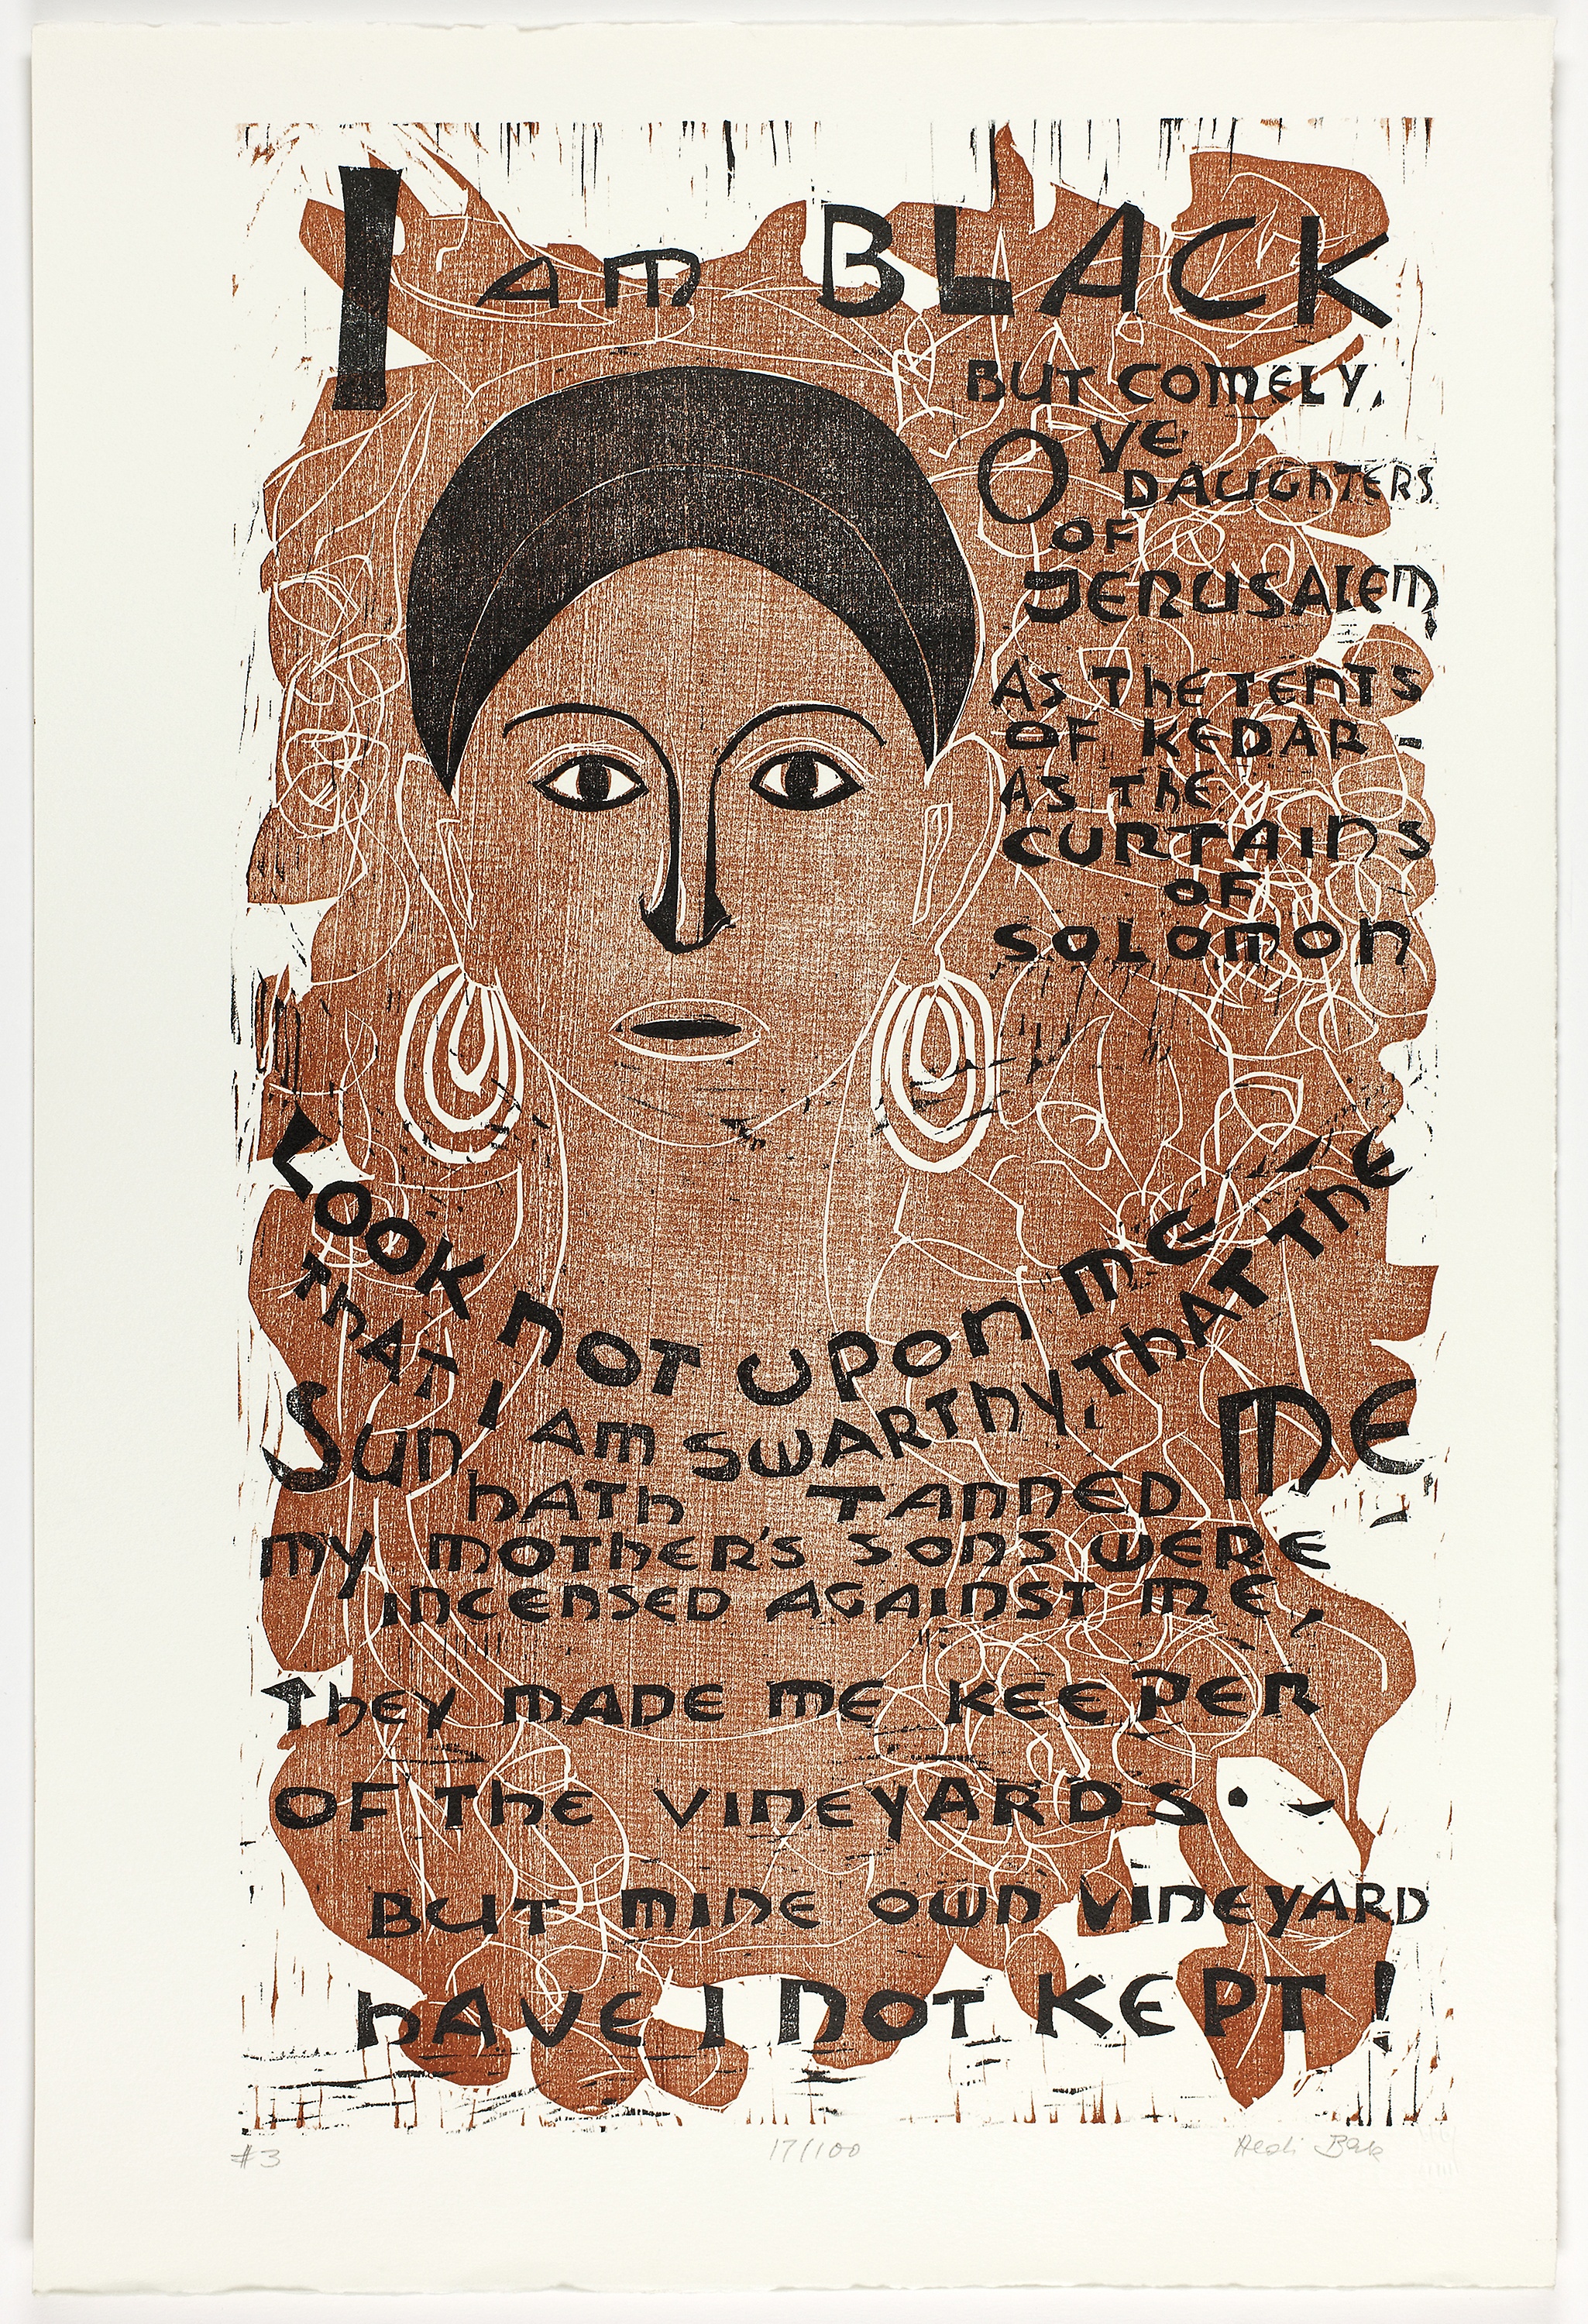 I AM BLACK
BUT COMELY,
O YE
DAUGHTERS
OF
JERUSALEM,
AS THE TENTS
OF KEDAR -
AS THE
CURTAINS
OF
SOLOMON
LOOK NOT UPON ME
THAT I AM SWARTHY, THAT THE
SUN HATH TANNED ME
MY MOTHER'S SONS WERE
INCENSED AGAINST ME,
THEY MADE ME KEEPER
OF THE VINEYARDS.
BUT MINE OWN VINEYARD
HAVE I NOT KEPT!
#3 17/100 Heidi Bak